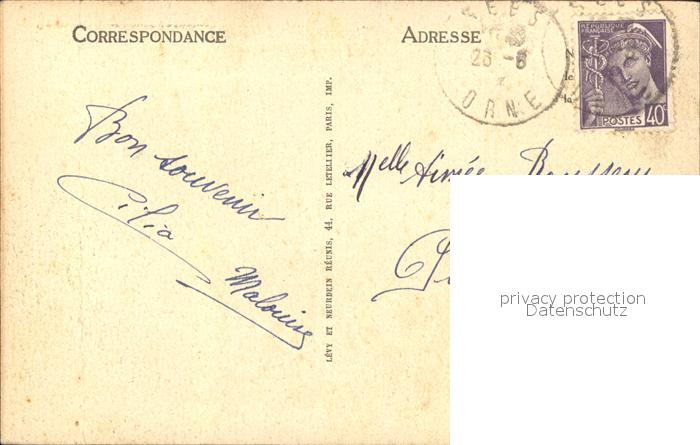 CORRESPONDANCE
ADRESSE
EES
23 -6
ORNE
RÉPUBLIQUE FRANÇAISE
POSTES 40c
Bon souvenir
Malouine
Melle Aimée
LÉVY ET NEURDEIN RÉUNIS, 44, RUE LETELLIER, PARIS, IMP.
privacy protection
Datenschutz